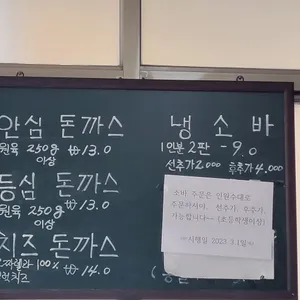 안심 돈까스
원육 250g 이상 ₩13.0
등심 돈까스
원육 250g 이상 ₩13.0
치즈 돈까스
100% ₩14.0
냉소바
1인분 2판 - 9.0
선추가 2,000 후추가 4,000
소바 주문은 인원수대로
주문하셔야, 선추가, 후추가
가능합니다~ (초등학생이상)
시행일 2023.3.1일